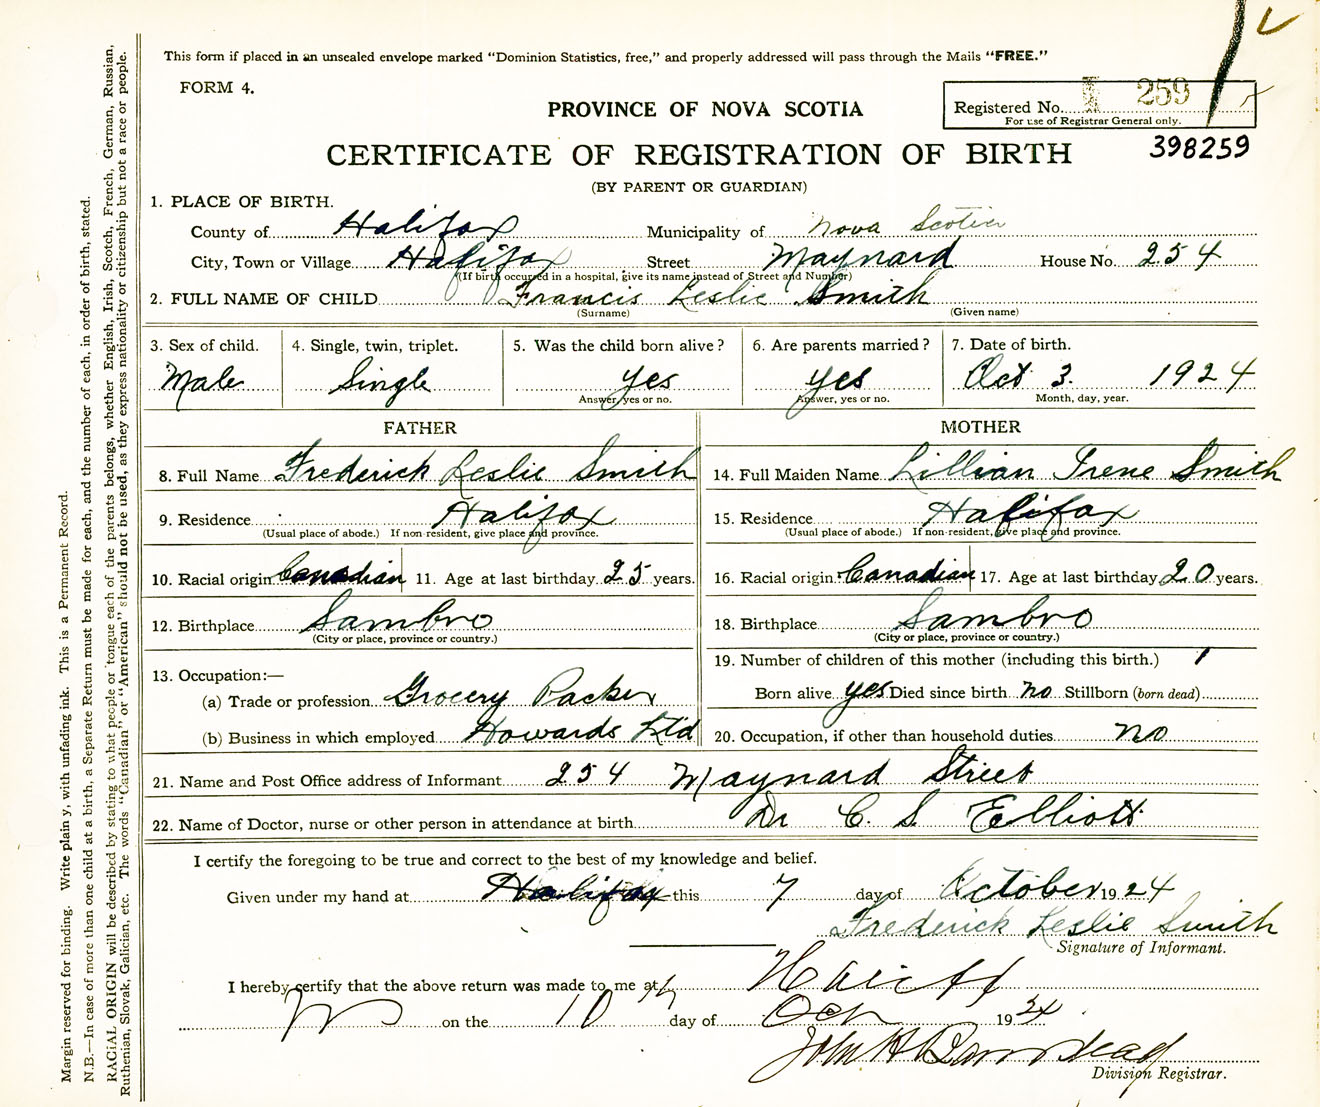 This form if placed in an unsealed envelope marked "Dominion Statistics, free," and properly addressed will pass through the Mails "FREE."
FORM 4.
Registered No. 259
For use of Registrar General only.
PROVINCE OF NOVA SCOTIA
398259
CERTIFICATE OF REGISTRATION OF BIRTH
(BY PARENT OR GUARDIAN)
1. PLACE OF BIRTH.
County of Halifax Municipality of Nova Scotia
City, Town or Village Halifax Street Maynard House No. 254
(If birth occurred in a hospital, give its name instead of Street and Number)
2. FULL NAME OF CHILD Francis Leslie Smith
(Surname) (Given name)
3. Sex of child. 4. Single, twin, triplet. 5. Was the child born alive? 6. Are parents married? 7. Date of birth.
Male Single yes yes Oct 3. 1924
Answer, yes or no. Answer, yes or no. Month, day, year.
FATHER MOTHER
8. Full Name Frederick Leslie Smith 14. Full Maiden Name Lillian Irene Smith
9. Residence Halifax 15. Residence Halifax
(Usual place of abode.) If non-resident, give place and province. (Usual place of abode.) If non-resident, give place and province.
10. Racial origin Canadian 11. Age at last birthday 25 years. 16. Racial origin Canadian 17. Age at last birthday 20 years.
12. Birthplace Sambro 18. Birthplace Sambro
(City or place, province or country.) (City or place, province or country.)
13. Occupation:— 19. Number of children of this mother (including this birth.) 1
(a) Trade or profession Grocery Packer Born alive yes Died since birth no Stillborn (born dead)
(b) Business in which employed Howards Ltd 20. Occupation, if other than household duties no
21. Name and Post Office address of Informant 254 Maynard Street
22. Name of Doctor, nurse or other person in attendance at birth Dr C. S. Elliott
I certify the foregoing to be true and correct to the best of my knowledge and belief.
Given under my hand at Halifax this 7 day of October 1924
Frederick Leslie Smith
Signature of Informant.
I hereby certify that the above return was made to me at
on the 10th day of Oct 1924
John H
Division Registrar.
Margin reserved for binding. Write plainly, with unfading ink. This is a Permanent Record.
N.B.—In case of more than one child at a birth, a Separate Return must be made for each, and the number of each, in order of birth, stated.
RACIAL ORIGIN will be described by stating to what people or tongue each of the parents belongs, whether English, Irish, Scotch, French, German, Russian,
Ruthenian, Slovak, Galician, etc. The words "Canadian" or "American" should not be used, as they express nationality or citizenship but not a race or people.